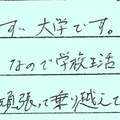 ず、大学です。
なので学校生活
頑張って乗り越えて